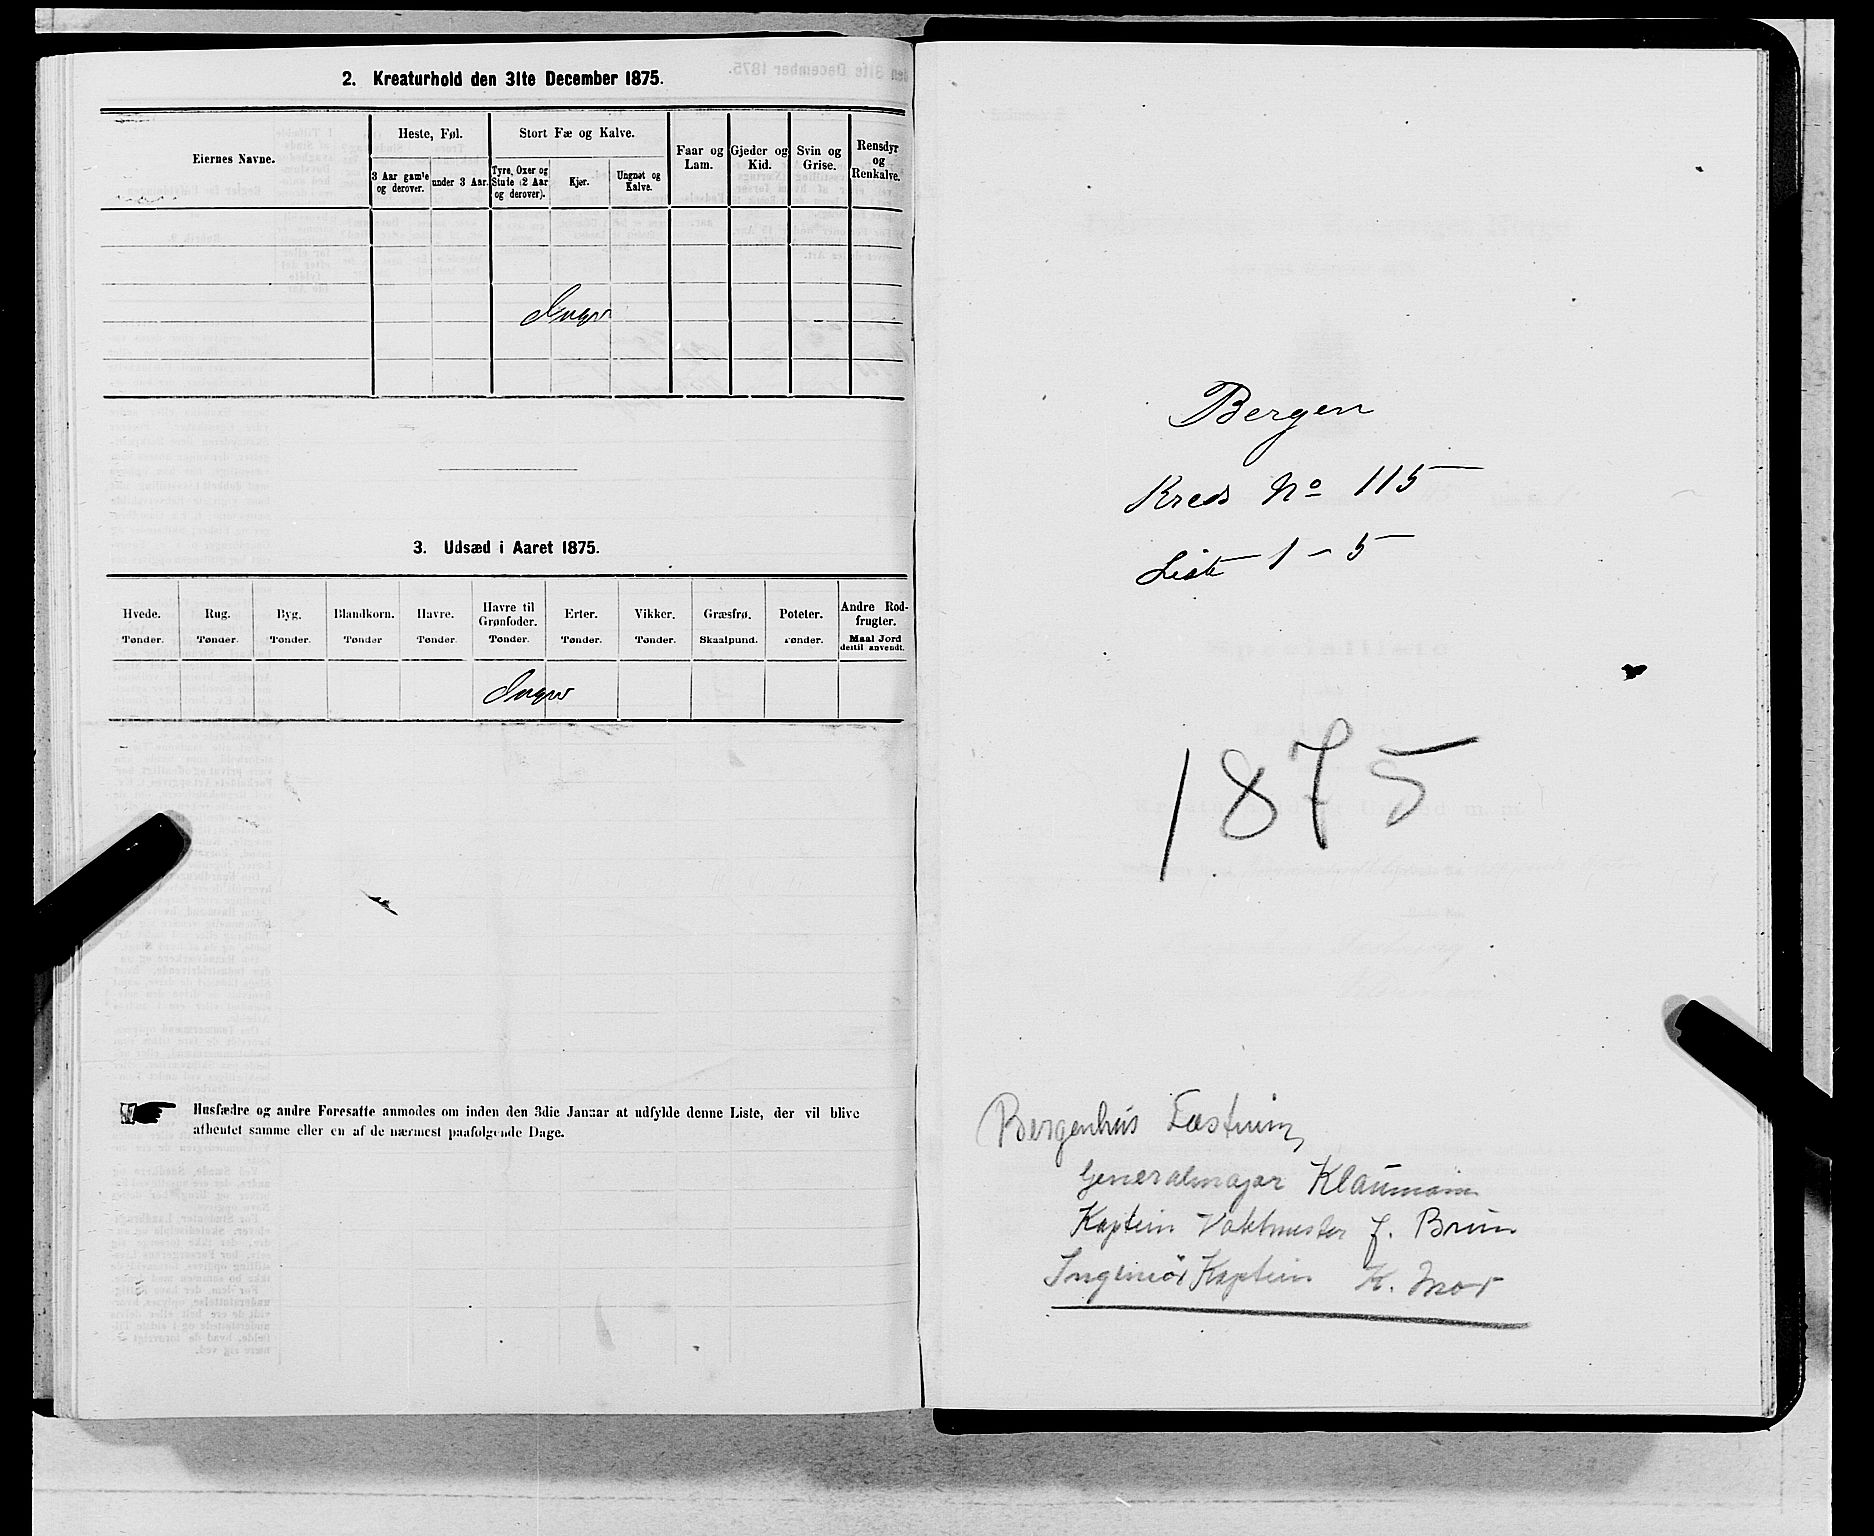 2. Kreaturhold den 31te December 1875.
Eiernes Navne.
Heste, Føl.
Stort Fæ og Kalve.
Faar og Lam.
Gjeder og Kid.
Svin og Grise.
Rensdyr og Renkalve.
3 Aar gamle og derover.
under 3 Aar.
Tyre, Oxer og Stude (2 Aar og derover).
Kjør.
Ungnøt og Kalve.
3. Udsæd i Aaret 1875.
Hvede. Rug. Byg. Blandkorn. Havre. Havre til Grønfoder. Erter. Vikker. Græsfrø. Poteter. Andre Rodfrugter.
Tønder. Tønder. Tønder. Tønder Tønder. Tønder. Tønder. Tønder. Skaalpund. Tønder. Maal Jord dertil anvendt.
Husfædre og andre Foresatte anmodes om inden den 3die Januar at udfylde denne Liste, der vil blive
afhentet samme eller en af de nærmest paafølgende Dage.
Bergen
Kreds No 115
Liste 1 - 5
1875
Bergenhus Fæstning
Generalmajor Klaumann
Kaptein Vaktmester J. Brun
Ingeniør Kaptein K.